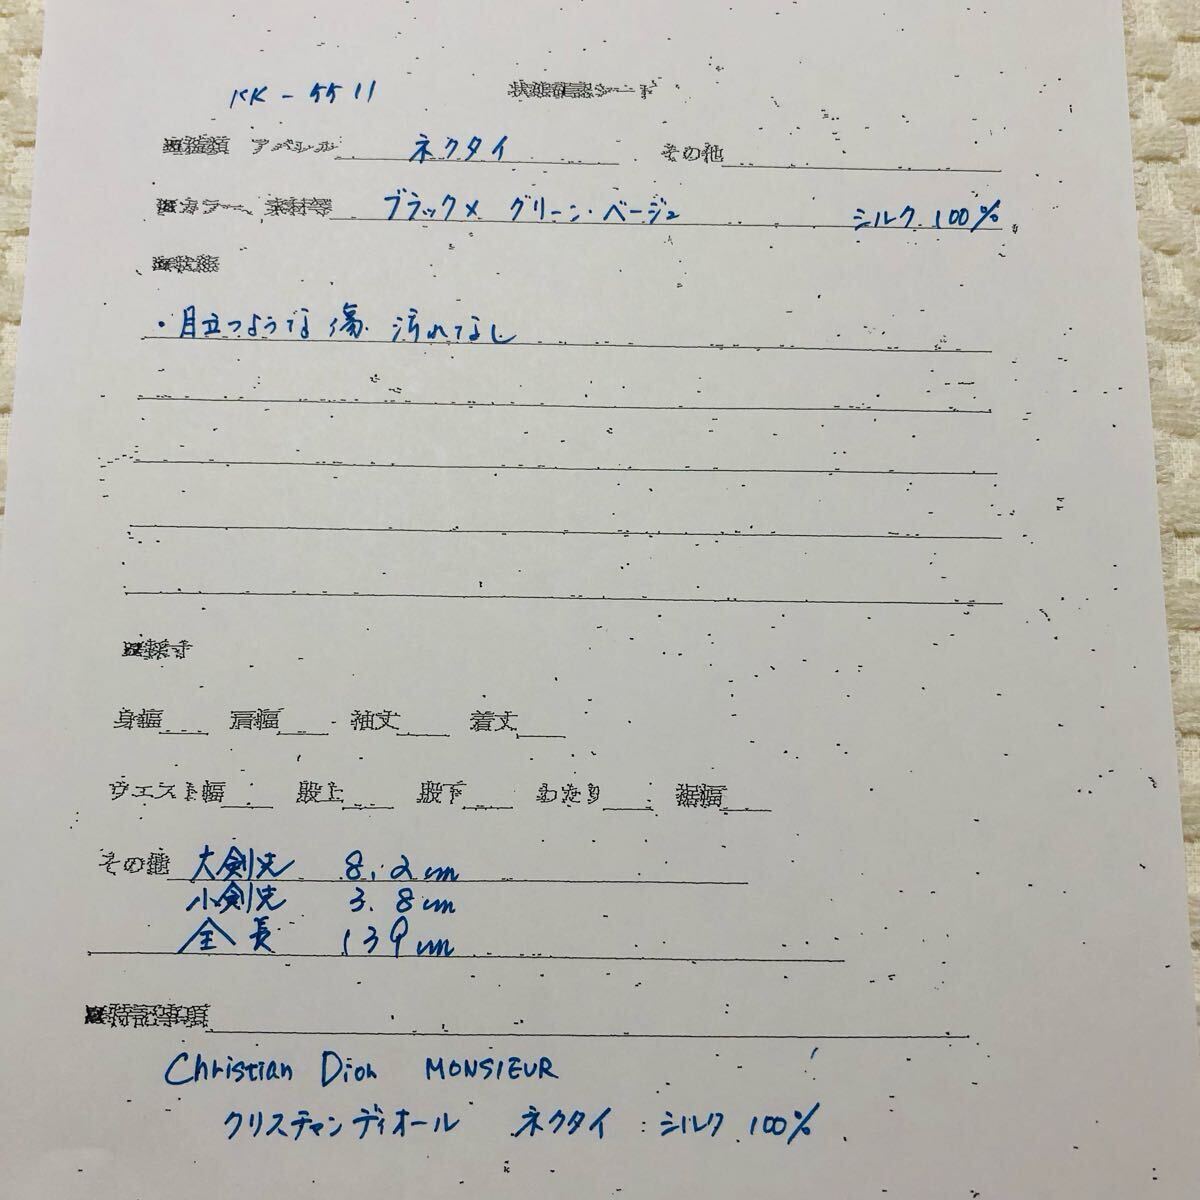 KK-5511 状態確認シート
■種類 アパレル ネクタイ その他
■カラー、素材等 ブラック× グリーン・ベージュ シルク 100%
■状態
・目立つような傷 汚れなし
■採寸
身幅 肩幅 袖丈 着丈
ウエスト幅 股上 股下 わたり 裾幅
その他 大剣先 8.2cm
小剣先 3.8cm
全長 139cm
■特記事項
Christian Dior MONSIEUR
クリスチャンディオール ネクタイ シルク 100%